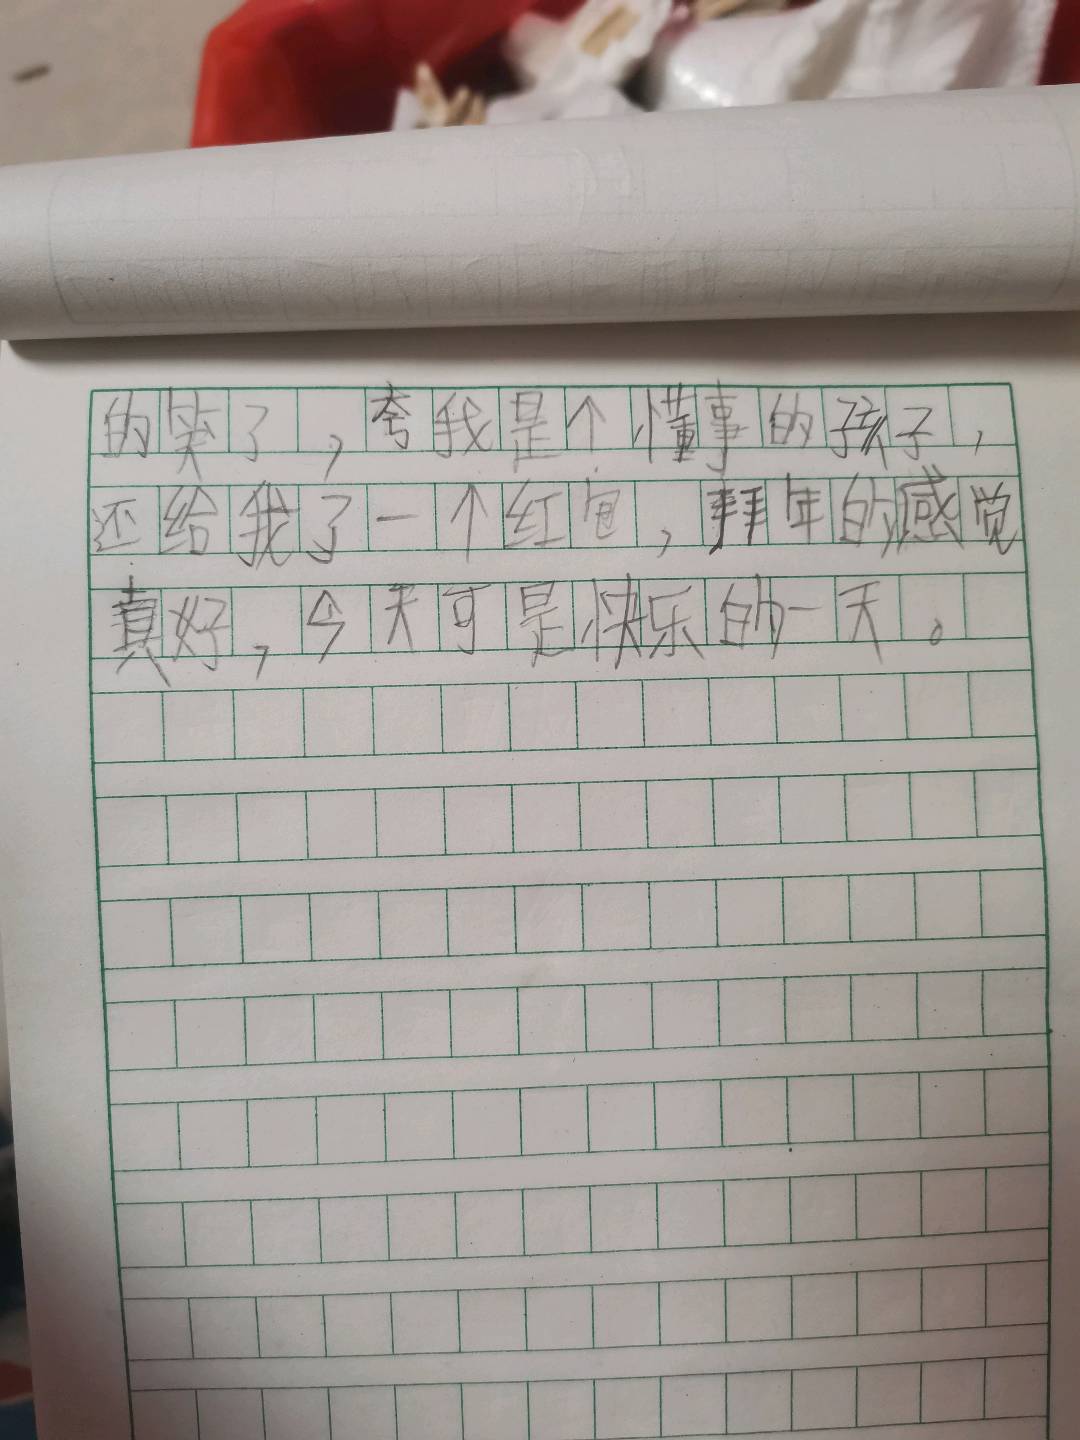 的笑了，夸我是个懂事的孩子，
还给我了一个红包，拜年的感觉
真好，今天可是快乐的一天。